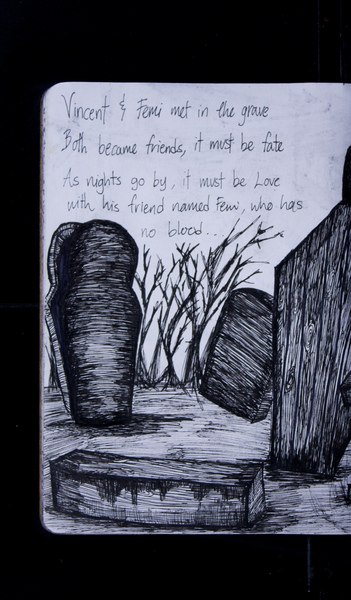 Vincent & Femi met in the grave
Both became friends, it must be fate
As nights go by, it must be Love
with his friend named Femi, who has
no blood...